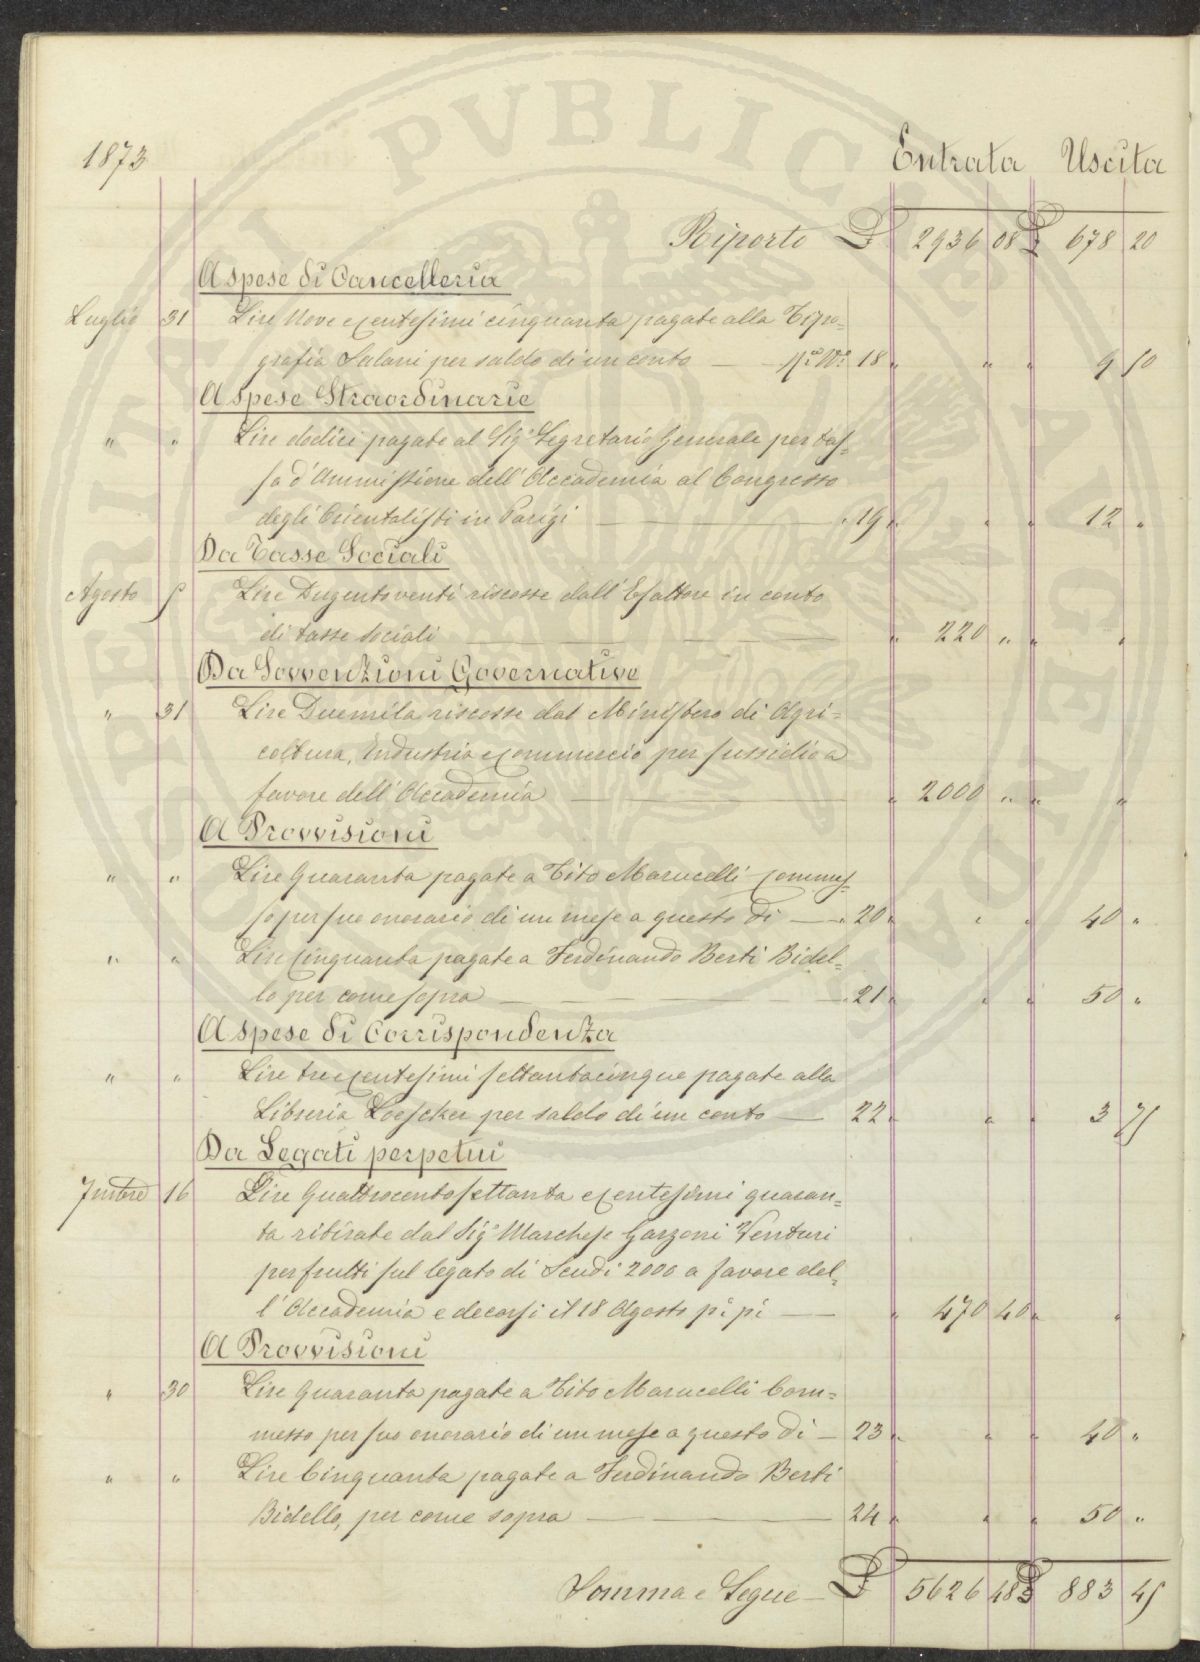 PROSPERITATI PUBLICAE AUGENDAE
1873 Entrata Uscita
Riporto £ 2936 08 £ 678 20
A spese di Cancelleria
Luglio 31 Lire Nove e centesimi cinquanta pagate alla Tipo=
grafia Salani per saldo di un conto — 18 " " " 9 50
A spese Straordinarie
" " Lire dodici pagate al Sig.r Segretario Generale per tas=
sa d'Ammissione dell'Accademia al Congresso
degli Orientalisti in Parigi — " 19 " " " 12 "
Da Tasse Sociali
Agosto 5 Lire Dugentoventi riscosse dall'Esattore in conto
di tasse sociali — " 220 " " "
Da Sovvenzioni Governative
" 31 Lire Duemila riscosse dal Ministero di Agri=
coltura, Industria e Commercio per sussidio a
favore dell'Accademia — " 2000 " " "
A Provvisioni
" " Lire Quaranta pagate a Tito Marucelli Commes=
so per suo onorario di un mese a questo dì — " 20 " " " 40 "
" " Lire Cinquanta pagate a Ferdinando Berti Bidel=
lo per come sopra — " 21 " " " 50 "
A spese di Corrispondenza
" " Lire tre e centesimi settantacinque pagate alla
Libreria Loescher per saldo di un conto — 22 " " " 3 75
Da Legati perpetui
7mbre 16 Lire Quattrocentosettanta e centesimi quaran=
ta ritirate dal Sig.r Marchese Garzoni Venturi
per frutti sul legato di Scudi 2000 a favore del=
l'Accademia e decorsi il 18 Agosto p.o p.o — " 470 40 " "
A Provvisioni
" 30 Lire Quaranta pagate a Tito Marucelli Com=
messo per suo onorario di un mese a questo dì — 23 " " " 40 "
" " Lire Cinquanta pagate a Ferdinando Berti
Bidello, per come sopra — 24 " " " 50 "
Somma e Segue — £ 5626 48 £ 883 45